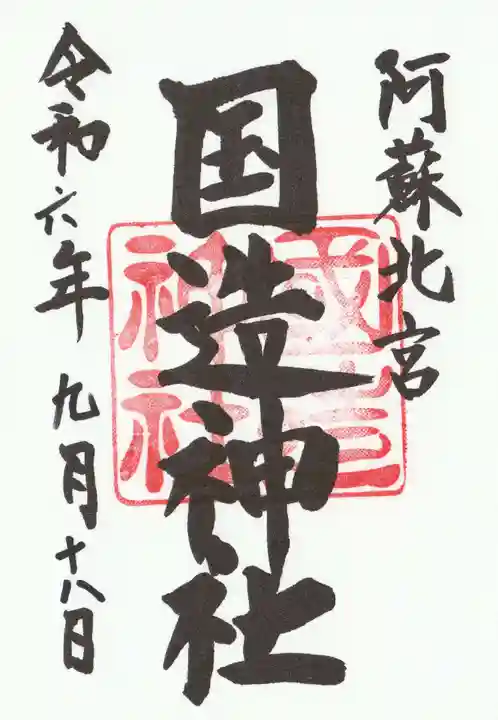 阿蘇北宮
国造神社
令和六年 九月十八日